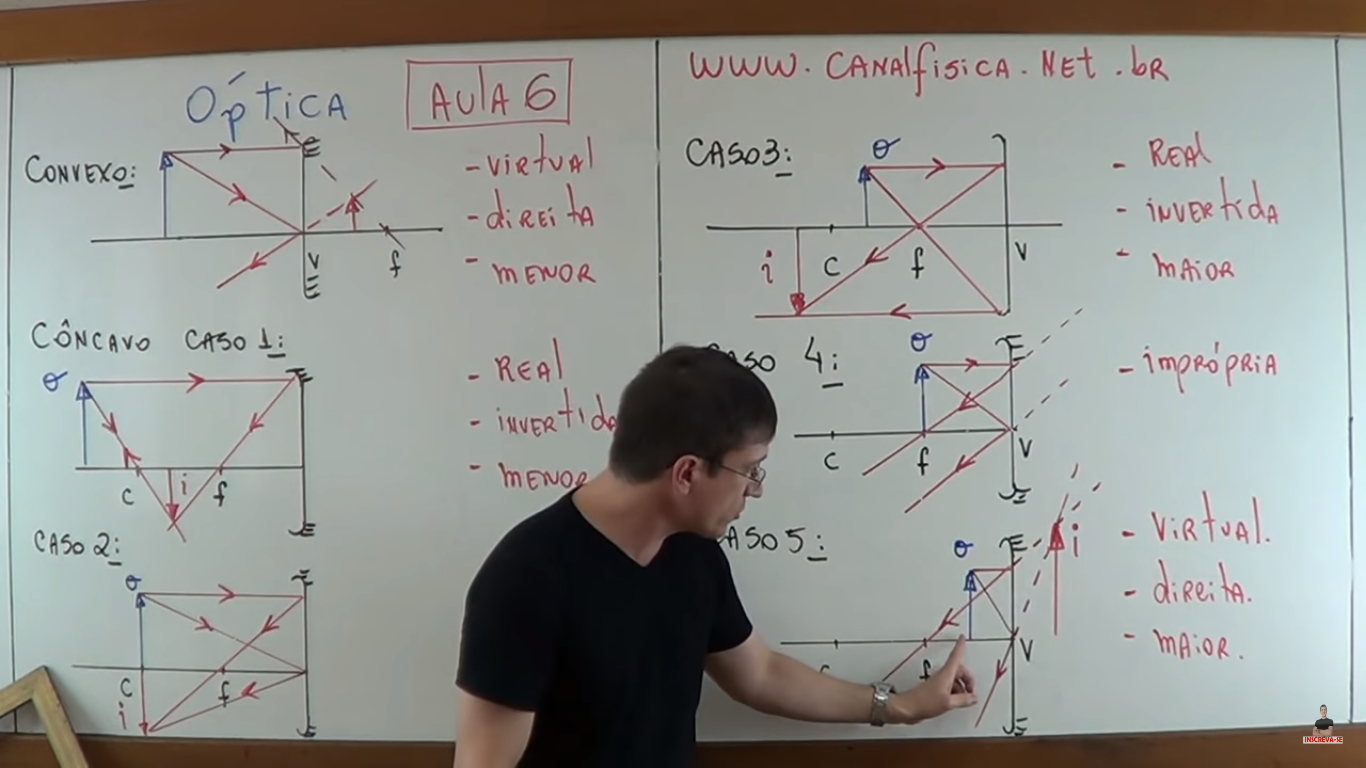 Óptica
AULA 6
CONVEXO:
- VIRTUAL
- diREITA
- MENOR
V
f
CÔNCAVO CASO 1:
o
- REAL
- INVERTIDA
- MENOR
C
i
f
CASO 2:
o
C
f
i
WWW.CANALFISICA.NET.bR
CASO 3:
o
- REAL
- INVERTIDA
- MAIOR
i
C
f
V
CASO 4:
o
- IMPRÓPRIA
C
f
V
CASO 5:
o
i
- VIRTUAL.
- diREITA.
- MAIOR.
f
V
INSCREVA-SE